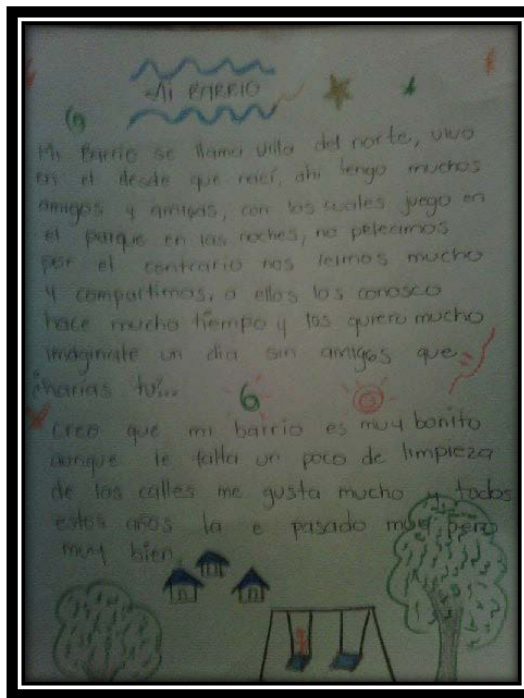 Mi BARRIO
Mi Barrio se llama villa del norte, vivo
en el desde que nací, ahi tengo muchos
amigos y amigas, con los cuales juego en
el parque en las noches, no peleamos
por el contrario nos reimos mucho
y compartimos, a ellos los conosco
hace mucho tiempo y los quiero mucho
imaginate un dia sin amigos que
harias tu...
creo que mi barrio es muy bonito
aunque le falta un poco de limpieza
de las calles me gusta mucho y todos
estos años la e pasado muy pero
muy bien.